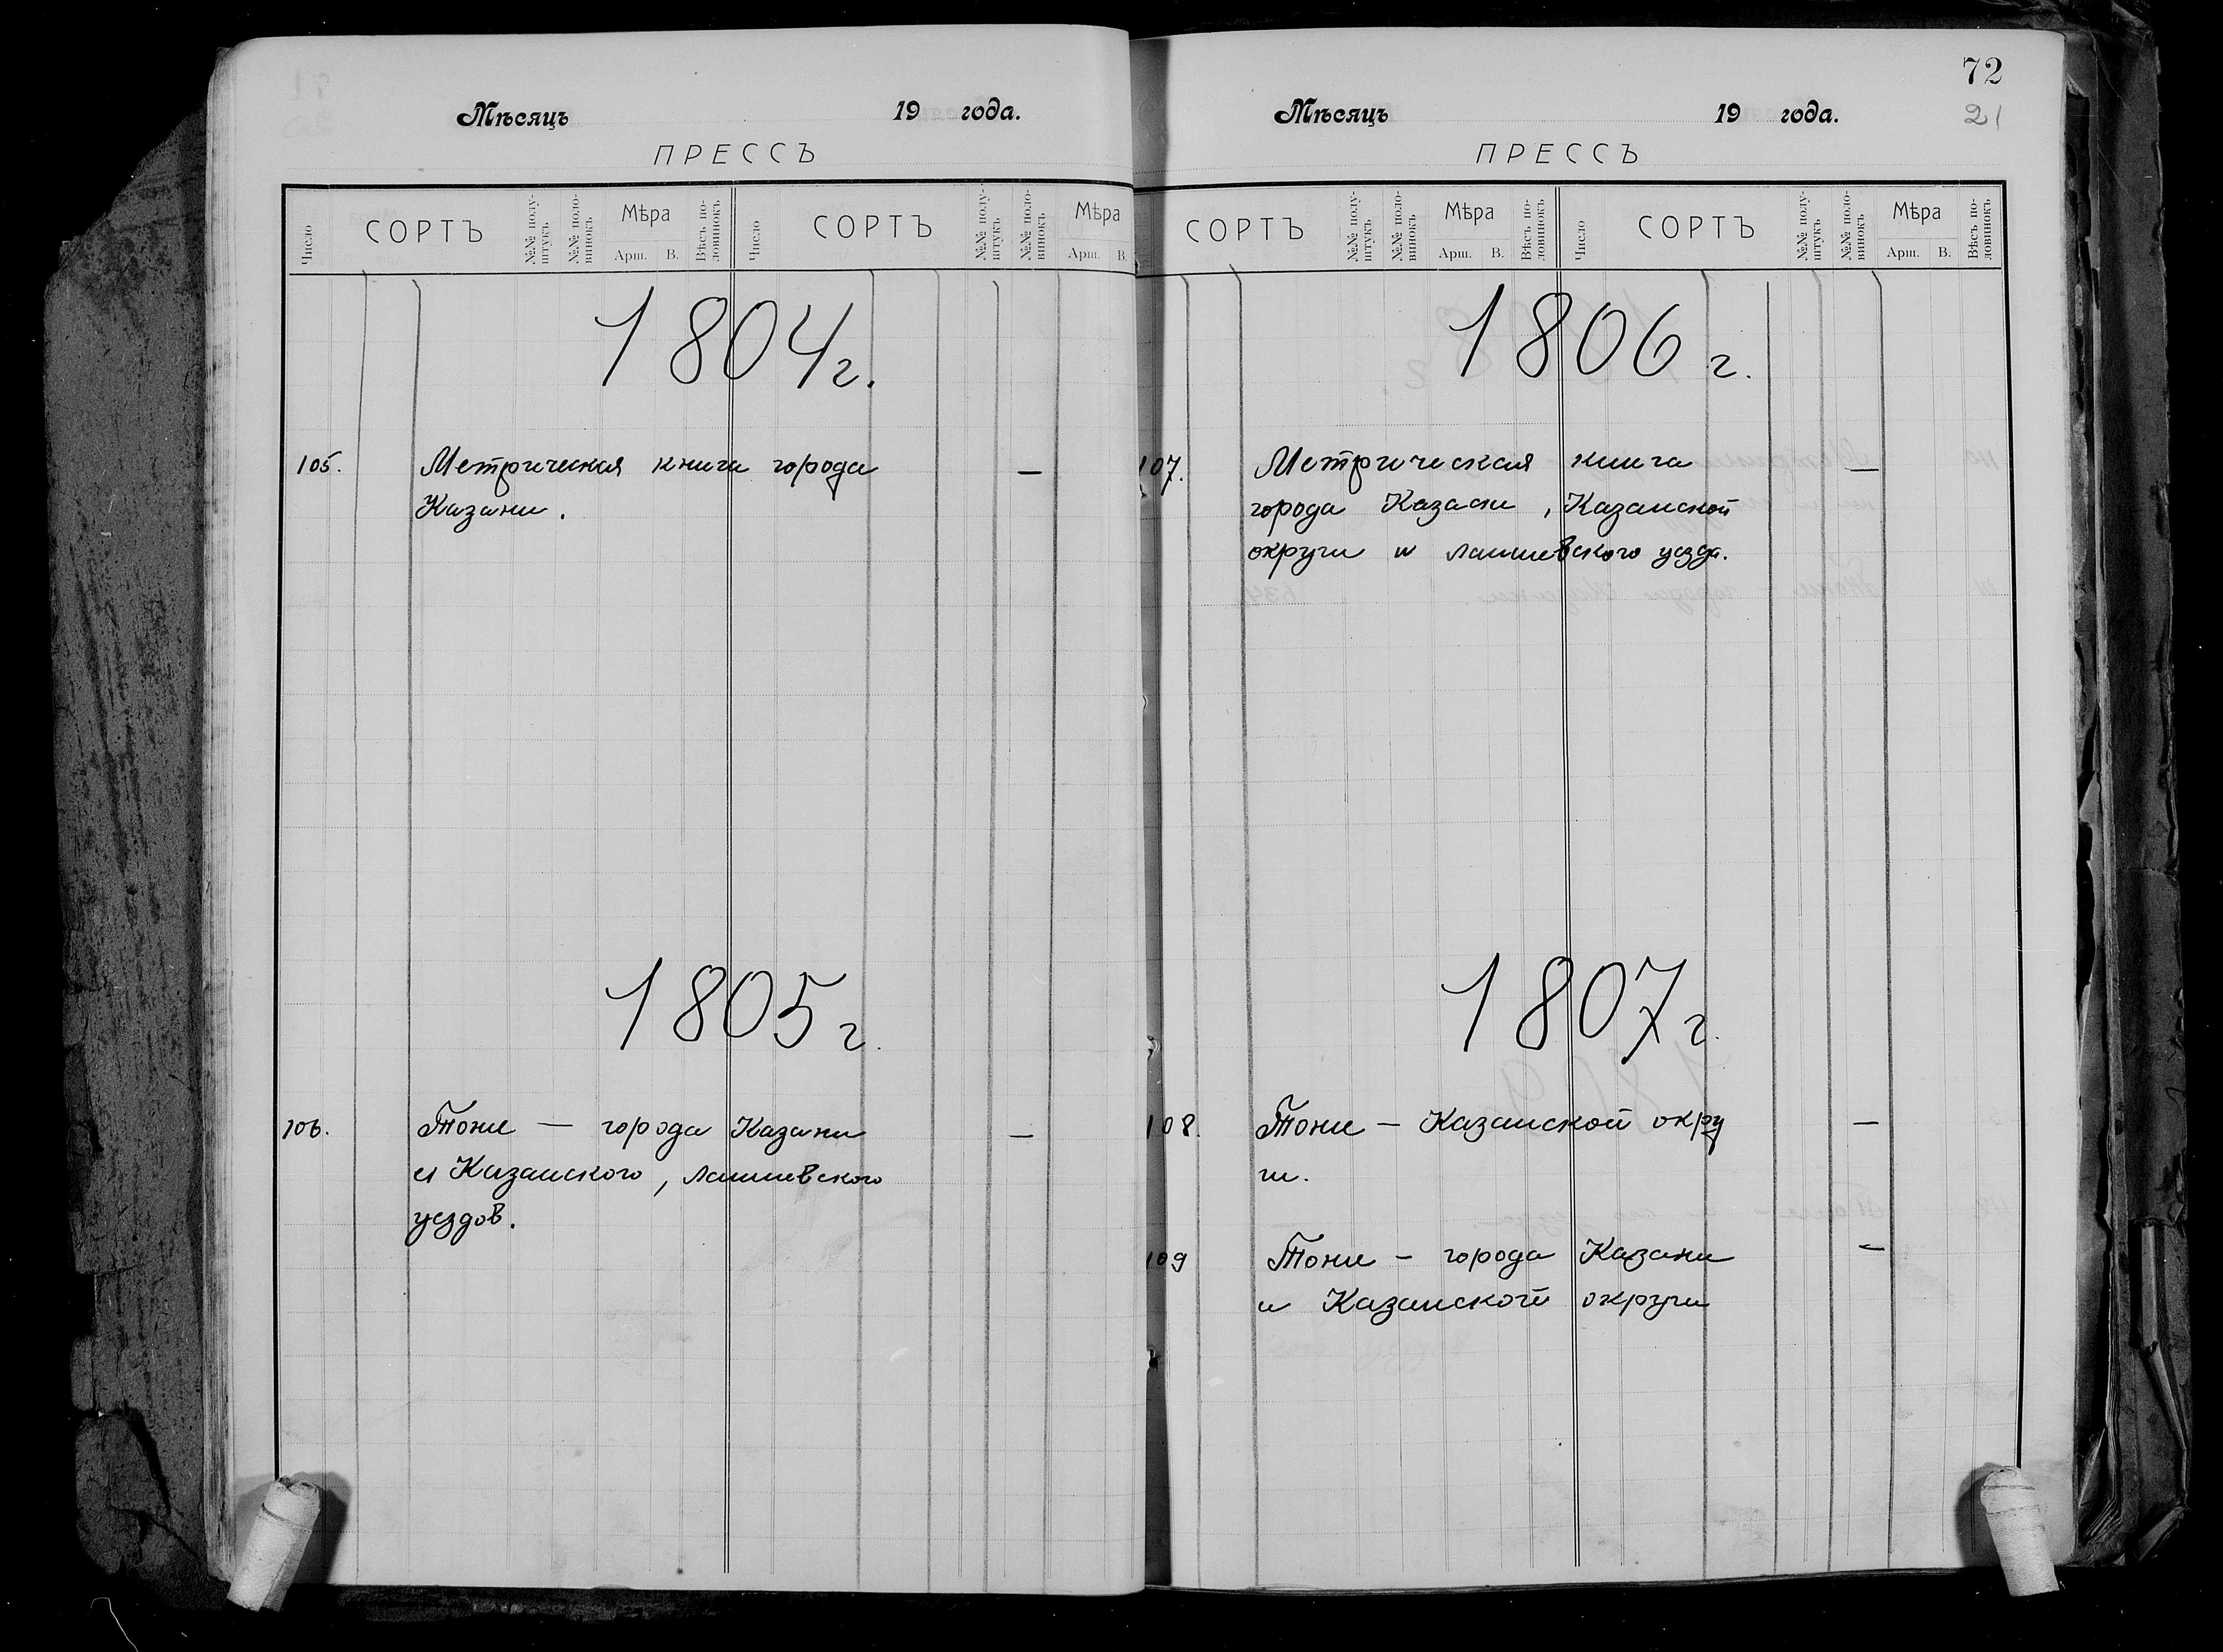 Мѣсяцъ 19 года.
ПРЕССЪ
Число СОРТЪ №№ полу-штукъ №№ поло-винокъ Мѣра Арш. В. Вѣсъ по-ловинокъ Число СОРТЪ №№ полу-штукъ №№ поло-винокъ Мѣра Арш. В.
1804г.
105. Метрическая книга города —
Казани.
1805г.
106. Тоже — города Казани —
и Казанского, лаишевского
уездов.
72
21
Мѣсяцъ 19 года.
ПРЕССЪ
СОРТЪ №№ полу-штукъ №№ поло-винокъ Мѣра Арш. В. Вѣсъ по-ловинокъ Число СОРТЪ №№ полу-штукъ №№ поло-винокъ Мѣра Арш. В. Вѣсъ по-ловинокъ
1806г.
107. Метрическая книга —
города Казани, Казанской
округи и лаишевского уезда.
1807г.
108. Тоже — Казанской окру —
ги.
109 Тоже — города Казани —
и Казанской округи